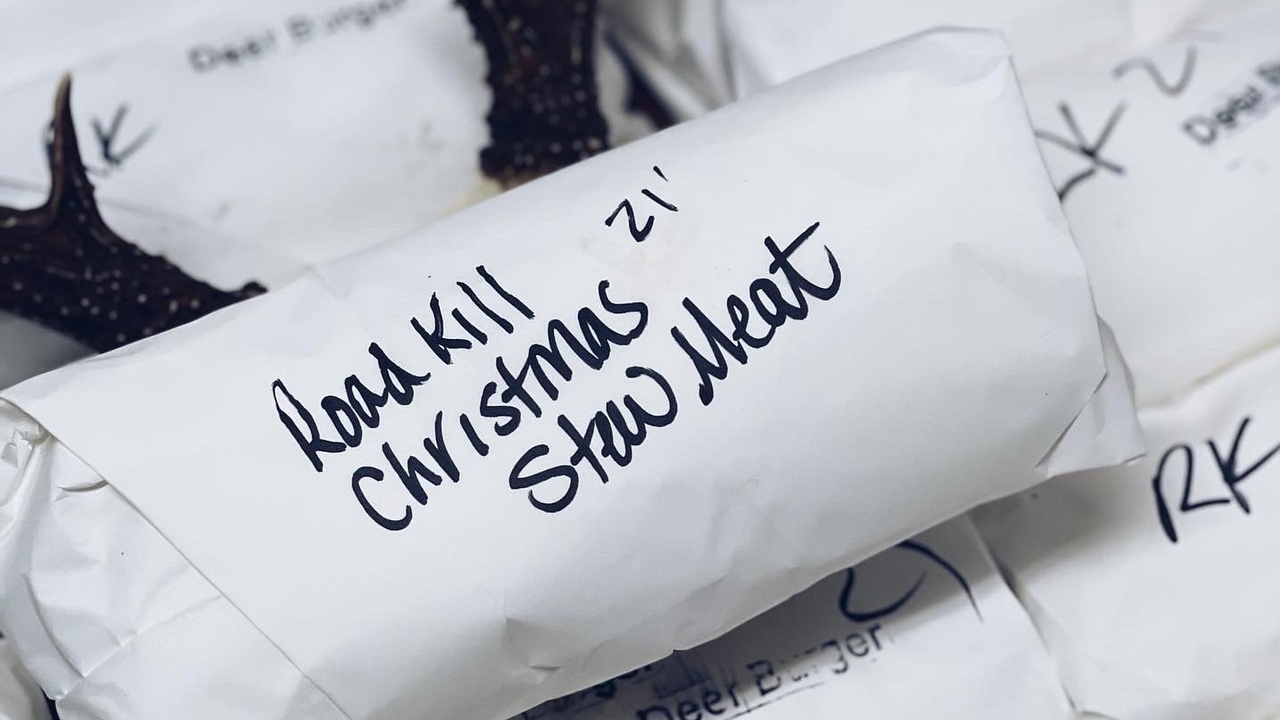 Deer Burger
RK
21'
Road Kill
Christmas
Stew Meat
RK 2
Deer B
RK
Deer Burger